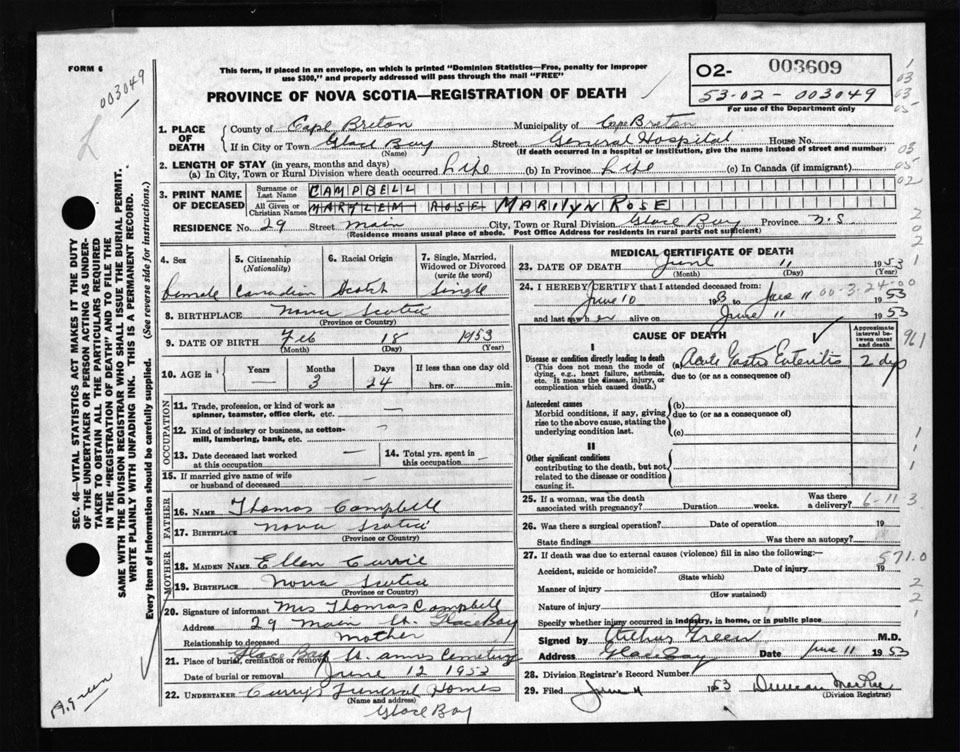 FORM 6
003049
This form, if placed in an envelope, on which is printed "Dominion Statistics—Free, penalty for improper
use $300," and properly addressed will pass through the mail "FREE"
PROVINCE OF NOVA SCOTIA—REGISTRATION OF DEATH
02- 003609
53-02-003049
For use of the Department only
1. PLACE OF DEATH
County of Cape Breton Municipality of Cape Breton
If in City or Town Glace Bay Street General Hospital House No.
(Name) (If death occurred in a hospital or institution, give the name instead of street and number)
2. LENGTH OF STAY (in years, months and days)
(a) In City, Town or Rural Division where death occurred Life (b) In Province Life (c) In Canada (if immigrant)
3. PRINT NAME OF DECEASED
Surname or Last Name CAMPBELL
All Given or Christian Names MARYLEM ROSE MARILYN ROSE
RESIDENCE No. 29 Street Main City, Town or Rural Division Glace Bay Province N.S.
(Residence means usual place of abode. Post Office Address for residents in rural parts not sufficient)
4. Sex
Female
5. Citizenship (Nationality)
Canadian
6. Racial Origin
Scotch
7. Single, Married, Widowed or Divorced (write the word)
Single
8. BIRTHPLACE Nova Scotia
(Province or Country)
9. DATE OF BIRTH Feb 18 1953
(Month) (Day) (Year)
10. AGE in
Years —
Months 3
Days 24
If less than one day old
hrs. or min.
OCCUPATION
11. Trade, profession, or kind of work as spinner, teamster, office clerk, etc. —
12. Kind of industry or business, as cotton-mill, lumbering, bank, etc. —
13. Date deceased last worked at this occupation —
14. Total yrs. spent in this occupation —
15. If married give name of wife or husband of deceased
FATHER
16. NAME Thomas Campbell
17. BIRTHPLACE Nova Scotia
(Province or Country)
MOTHER
18. MAIDEN NAME Ellen Currie
19. BIRTHPLACE Nova Scotia
(Province or Country)
20. Signature of informant Mrs Thomas Campbell
Address 29 Main St. Glace Bay
Relationship to deceased Mother
21. Place of burial, cremation or removal Glace Bay St. Annes Cemetery
Date of burial or removal June 12 1953
22. UNDERTAKER Curry's Funeral Homes
(Name and address)
Glace Bay
MEDICAL CERTIFICATE OF DEATH
23. DATE OF DEATH June 11 1953
(Month) (Day) (Year)
24. I HEREBY CERTIFY that I attended deceased from:
June 10 1953 to June 11 1953
00-3-24-00
and last saw her alive on June 11 1953
CAUSE OF DEATH
Approximate interval between onset and death
I
Disease or condition directly leading to death
(This does not mean the mode of dying, e.g., heart failure, asthenia, etc. It means the disease, injury, or complication which caused death.)
(a) Acute Gastro Enteritis 2 dys
due to (or as a consequence of)
Antecedent causes
Morbid conditions, if any, giving rise to the above cause, stating the underlying condition last.
(b)
due to (or as a consequence of)
(c)
II
Other significant conditions
contributing to the death, but not related to the disease or condition causing it.
25. If a woman, was the death associated with pregnancy? Duration weeks. Was there a delivery?
6-11 3
26. Was there a surgical operation? Date of operation 19
State findings Was there an autopsy?
27. If death was due to external causes (violence) fill in also the following:—
Accident, suicide or homicide? Date of injury 19
571.0
(State which)
Manner of injury
(How sustained)
Nature of injury
Specify whether injury occurred in industry, in home, or in public place
Signed by Arthur Green M.D.
Address Glace Bay Date June 11 1953
28. Division Registrar's Record Number
29. Filed June 11 1953 Duncan
(Division Registrar)
SEC. 46—VITAL STATISTICS ACT MAKES IT THE DUTY
OF THE UNDERTAKER OR PERSON ACTING AS UNDER-
TAKER TO OBTAIN ALL THE PARTICULARS REQUIRED
IN THE "REGISTRATION OF DEATH" AND TO FILE THE
SAME WITH THE DIVISION REGISTRAR WHO SHALL ISSUE THE BURIAL PERMIT.
WRITE PLAINLY WITH UNFADING INK. THIS IS A PERMANENT RECORD.
Every item of information should be carefully supplied. (See reverse side for instructions.)
A. Green
1
03
03
05
03
05
02
2
0
2
1
961
1
1
1
2
2
1